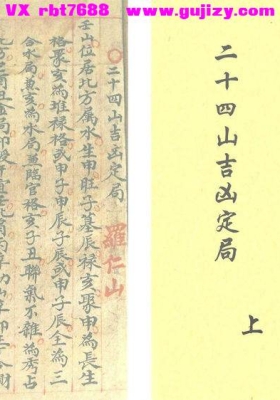 VX rbt7688  www.gujizy.com
二十四山吉凶定局
上
二十四山吉凶定局 羅仁山
壬山位居北方属水生申旺子墓辰禄亥聚申為長生
格聚亥為堆禄格或申子申辰子辰或申子辰全為三
合水局兼亥為水局兼臨官格亥子丑聯氣不雜為秀占